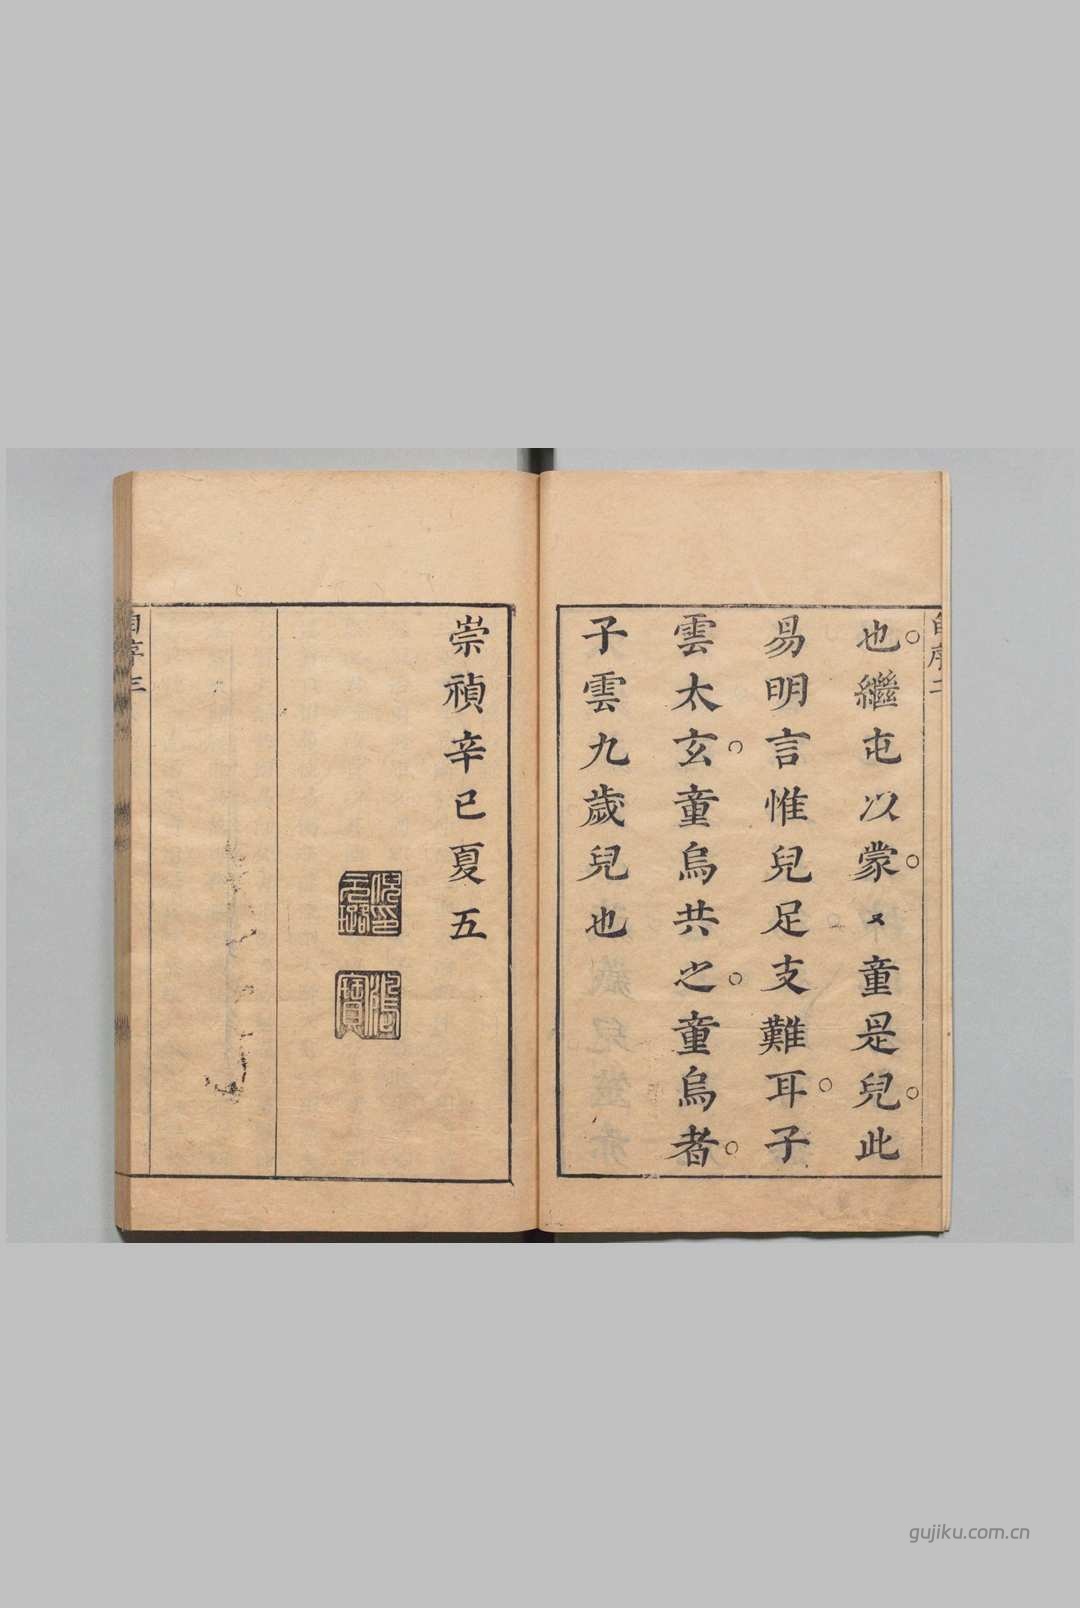 自序二
也繼屯以蒙〻童是兒此
易明言惟兒足支難耳子
雲太玄童烏共之童烏者
子雲九歲兒也
崇禎辛巳夏五
倪元璐印
鴻寶
自序三
gujiku.com.cn